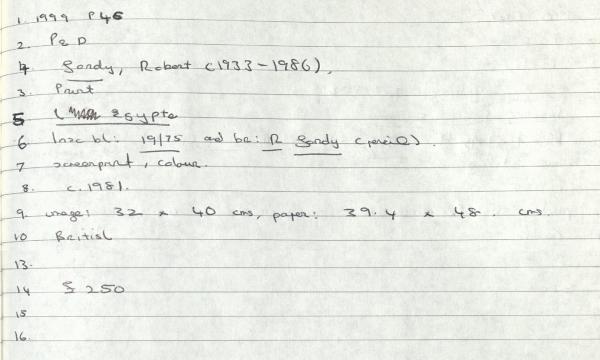 1. 1999 P46
2. P & D
4 Gordy, Robert (1933-1986),
3. Print
5 Egypte
6 Insc bl: 19/75 and br: R Gordy (pencil).
7 screenprint, colour.
8. c. 1981.
9. image: 32 x 40 cms, paper: 39.4 x 48. cms.
10 British
13.
14 £ 250
15
16.